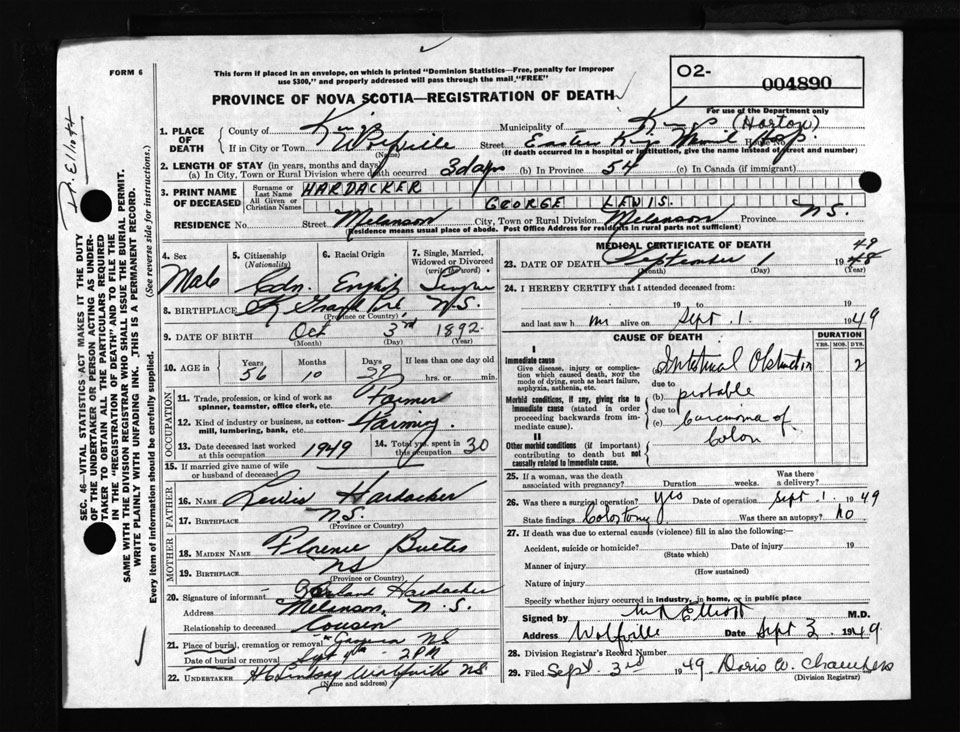 FORM 6
This form if placed in an envelope, on which is printed "Dominion Statistics—Free, penalty for improper
use $300," and properly addressed will pass through the mail "FREE"
O2- 004890
For use of the Department only
PROVINCE OF NOVA SCOTIA—REGISTRATION OF DEATH
Dr. Elliott
SEC. 46—VITAL STATISTICS ACT MAKES IT THE DUTY
OF THE UNDERTAKER OR PERSON ACTING AS UNDER-
TAKER TO OBTAIN ALL THE PARTICULARS REQUIRED
IN THE "REGISTRATION OF DEATH" AND TO FILE THE
SAME WITH THE DIVISION REGISTRAR WHO SHALL ISSUE THE BURIAL PERMIT.
WRITE PLAINLY WITH UNFADING INK. THIS IS A PERMANENT RECORD.
Every item of information should be carefully supplied. (See reverse side for instructions.)
1. PLACE OF DEATH
County of Kings Municipality of Kings (Horton)
If in City or Town Wolfville (Name) Street Eastern Kings Mem'l Hosp. House No
(If death occurred in a hospital or institution, give the name instead of street and number)
2. LENGTH OF STAY (in years, months and days)
(a) In City, Town or Rural Division where death occurred 3 days (b) In Province 54 (c) In Canada (if immigrant)
3. PRINT NAME OF DECEASED
Surname or Last Name HARDACKER
All Given or Christian Names GEORGE LEWIS.
RESIDENCE No. Street Melanson City, Town or Rural Division Melanson Province N.S.
(Residence means usual place of abode. Post Office Address for residents in rural parts not sufficient)
4. Sex Male
5. Citizenship (Nationality) Cdn.
6. Racial Origin English
7. Single, Married, Widowed or Divorced (write the word) Single
8. BIRTHPLACE N.S.
(Province or Country)
9. DATE OF BIRTH Oct 3rd 1892
(Month) (Day) (Year)
10. AGE in Years 56 Months 10 Days 29 If less than one day old hrs. or min.
OCCUPATION
11. Trade, profession, or kind of work as spinner, teamster, office clerk, etc. Farmer
12. Kind of industry or business, as cotton-mill, lumbering, bank, etc. Farming.
13. Date deceased last worked at this occupation 1949
14. Total yrs. spent in this occupation 30
15. If married give name of wife or husband of deceased
FATHER
16. NAME Lewis Hardacker
17. BIRTHPLACE N.S.
(Province or Country)
MOTHER
18. MAIDEN NAME Florence
19. BIRTHPLACE NS
(Province or Country)
20. Signature of informant Hardacker
Address Melanson, N.S.
Relationship to deceased Cousin
21. Place of burial, cremation or removal NS
Date of burial or removal Sept 4th — 2PM
22. UNDERTAKER Lindsay Wolfville NS
(Name and address)
MEDICAL CERTIFICATE OF DEATH
23. DATE OF DEATH September 1 1948 49
(Month) (Day) (Year)
24. I HEREBY CERTIFY that I attended deceased from:
19 to 19
and last saw h m alive on Sept. 1. 1949
CAUSE OF DEATH
DURATION
YRS. MOS. DYS.
I
Immediate cause
Give disease, injury or complication which caused death, not the mode of dying, such as heart failure, asphyxia, asthenia, etc.
(a) Intestinal Obstruction 2
due to
Morbid conditions, if any, giving rise to immediate cause (stated in order proceeding backwards from immediate cause).
(b) probable
due to
(c) Carcinoma of Colon
II
Other morbid conditions (if important) contributing to death but not causally related to immediate cause.
25. If a woman, was the death associated with pregnancy? Duration weeks. Was there a delivery?
26. Was there a surgical operation? yes Date of operation Sept. 1. 1949
State findings Colostomy Was there an autopsy? no
27. If death was due to external causes (violence) fill in also the following:
Accident, suicide or homicide? Date of injury 19
(State which)
Manner of injury
(How sustained)
Nature of injury
Specify whether injury occurred in industry, in home, or in public place
Signed by Elliott M.D.
Address Wolfville Date Sept 3 1949
28. Division Registrar's Record Number
29. Filed Sept. 3rd 1949 Doris W. Chambers
(Division Registrar)